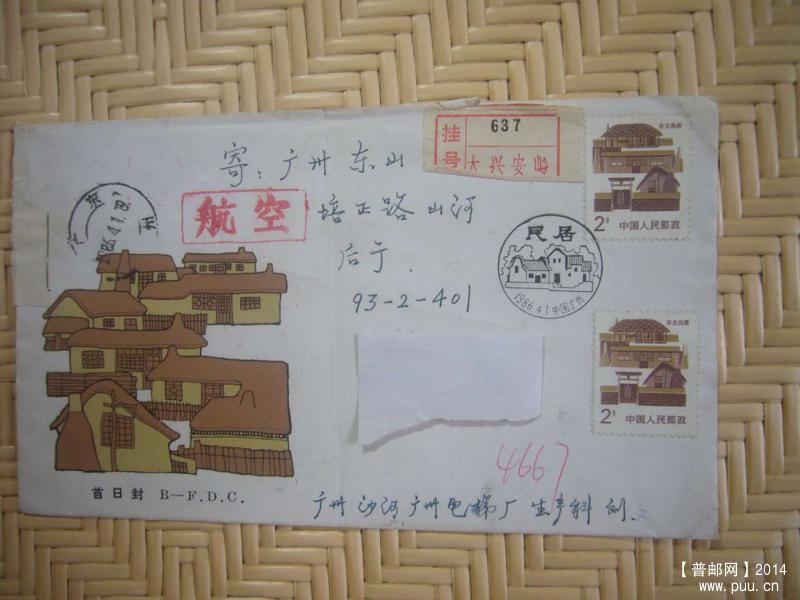 挂号
637
大兴安岭
寄:广州东山
航空
培正路山河
后于
93-2-401
民居
1986.4.1 中国广州
东北民居
2分
中国人民邮政
东北民居
2分
中国人民邮政
4667
首日封 B—F.D.C.
广州沙河广州电梯厂生产科 刘
【普邮网】2014
www.puu.cn